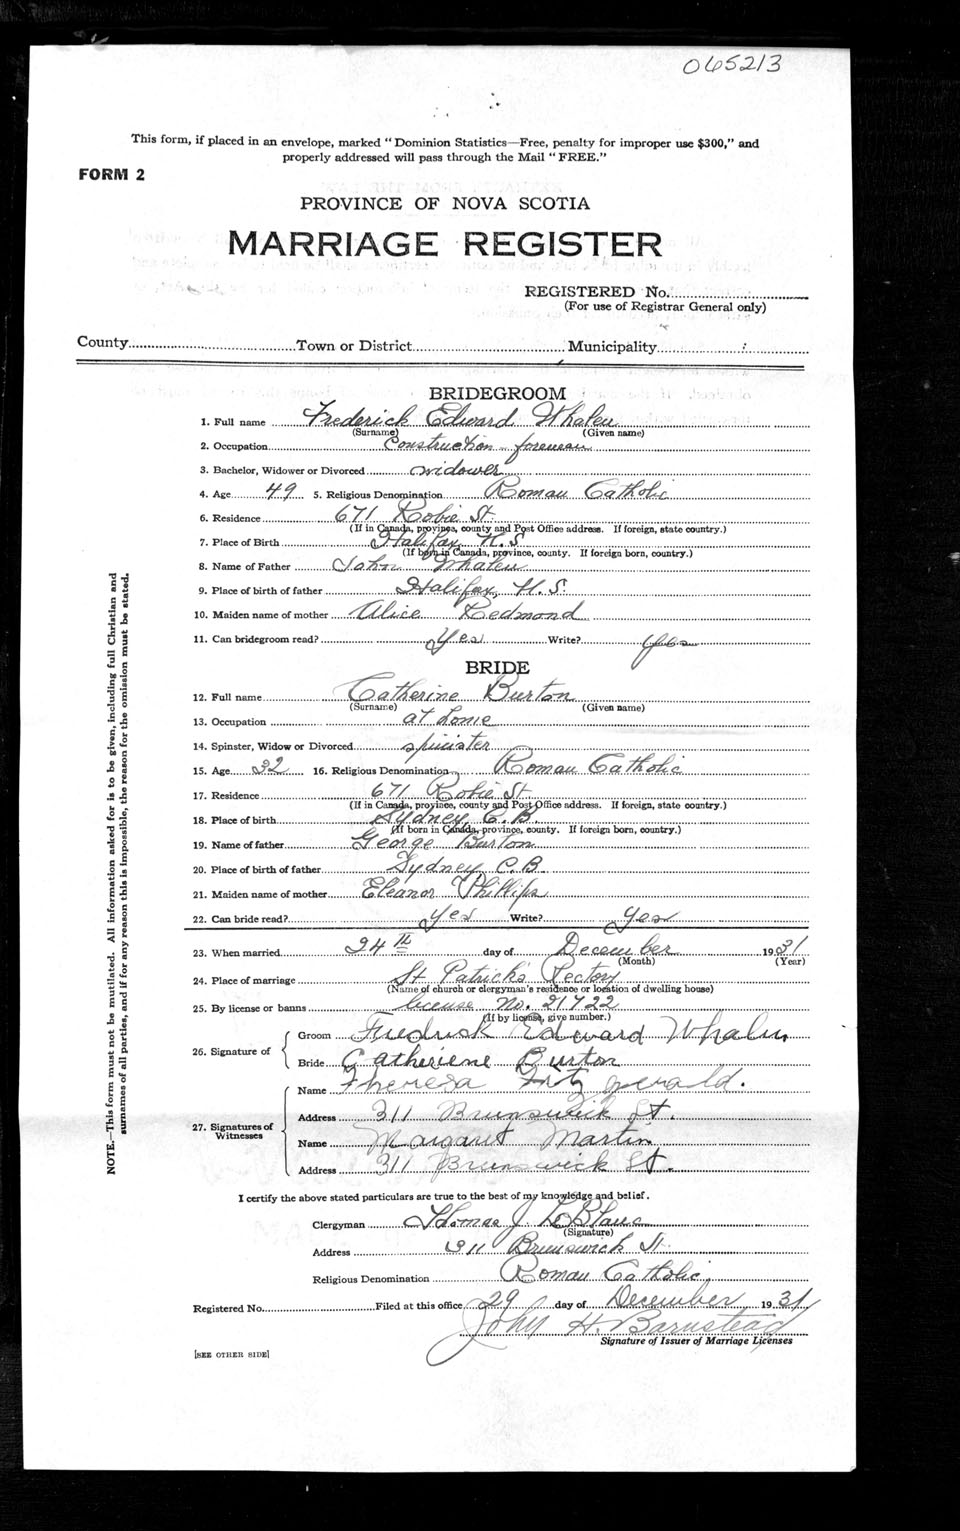 065213
This form, if placed in an envelope, marked "Dominion Statistics—Free, penalty for improper use $300," and
properly addressed will pass through the Mail "FREE."
FORM 2
PROVINCE OF NOVA SCOTIA
MARRIAGE REGISTER
REGISTERED No.
(For use of Registrar General only)
County Town or District Municipality
BRIDEGROOM
1. Full name Frederick Edward Whalen
(Surname) (Given name)
2. Occupation Construction foreman
3. Bachelor, Widower or Divorced widower
4. Age 49 5. Religious Denomination Roman Catholic
6. Residence 671 Robie St.
(If in Canada, province, county and Post Office address. If foreign, state country.)
7. Place of Birth Halifax, N.S.
(If born in Canada, province, county. If foreign born, country.)
8. Name of Father John Whalen
9. Place of birth of father Halifax, N.S.
10. Maiden name of mother Alice Redmond
11. Can bridegroom read? Yes Write? Yes
BRIDE
12. Full name Catherine Burton
(Surname) (Given name)
13. Occupation at home
14. Spinster, Widow or Divorced spinster
15. Age 32 16. Religious Denomination Roman Catholic
17. Residence 671 Robie St
(If in Canada, province, county and Post Office address. If foreign, state country.)
18. Place of birth Sydney C.B.
(If born in Canada, province, county. If foreign born, country.)
19. Name of father George Burton
20. Place of birth of father Sydney C.B.
21. Maiden name of mother Eleanor Phillips
22. Can bride read? Yes Write? Yes
23. When married 24th day of December 1931
(Month) (Year)
24. Place of marriage St Patrick's Rectory
(Name of church or clergyman's residence or location of dwelling house)
25. By license or banns license No. 21722
(If by license, give number.)
26. Signature of Groom Fredrick Edward Whalen
Bride Catheriene Burton
27. Signatures of Witnesses Name Theresa Fitzgerald.
Address 311 Brunswick St.
Name Margaret Martin
Address 311 Brunswick St.
I certify the above stated particulars are true to the best of my knowledge and belief.
Clergyman Thomas J. LeBlanc
(Signature)
Address 311 Brunswick St.
Religious Denomination Roman Catholic.
Registered No. Filed at this office 29 day of December 1931
John H. Barnstead
Signature of Issuer of Marriage Licenses
[SEE OTHER SIDE]
NOTE.—This form must not be mutilated. All information asked for is to be given, including full Christian and
surnames of all parties, and if for any reason this is impossible, the reason for the omission must be stated.